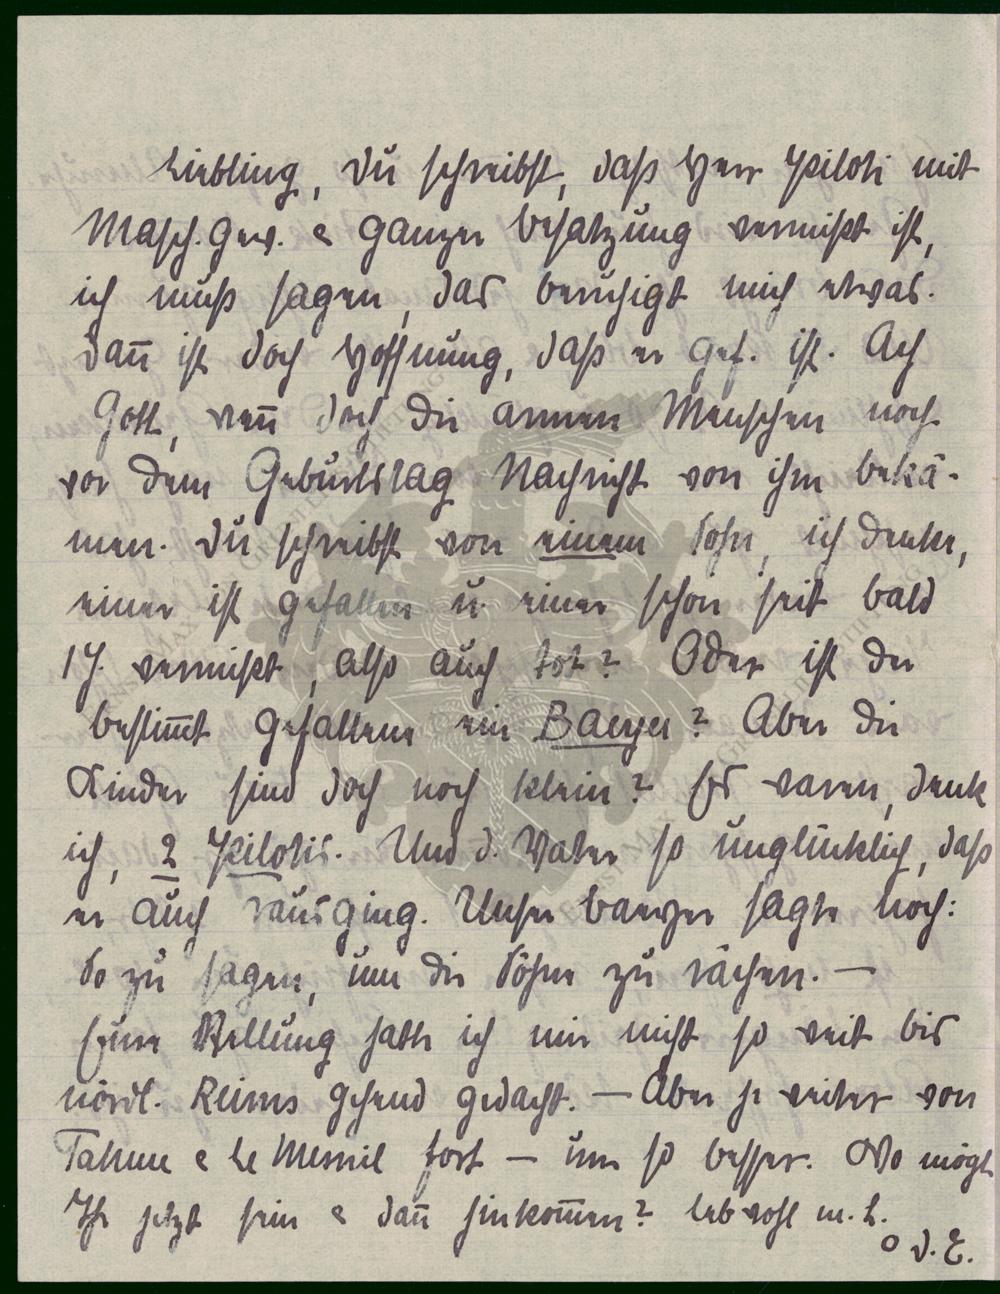 Liebling, du schreibst, daß Herr Piloti mit
Masch. Gew. & ganzer Besatzung vermißt ist,
ich muß sagen, das beruhigt mich etwas.
dañ ist doch Hoffnung, daß er gef. ist. Ach
Gott, weñ doch die armen Menschen noch
vor dem Geburtstag Nachricht von ihm bekä-
men. Du schreibst von einem Sohn, ich denke,
einer ist gefallen u. einer schon seit bald
1 J. vermißt, also auch tot? Oder ist der
bestim̄t gefallene ein Baeyer? Aber die
Kinder sind doch noch klein? Es waren, denk
ich, 2 Pilotis. Und d. Vater so unglücklich, daß
er auch rausging. Unser Baeyer sagte noch:
So zu sagen, um die Söhne zu rächen. —
Eure Stellung hatte ich mir nicht so weit bis
nördl. Reims gehend gedacht. — Aber je weiter von
Tahure & Le Mesnil fort — um so besser. Wo mögt
Ihr jetzt sein & dañ hinkom̄en? Leb wohl m. L.
o d. E.